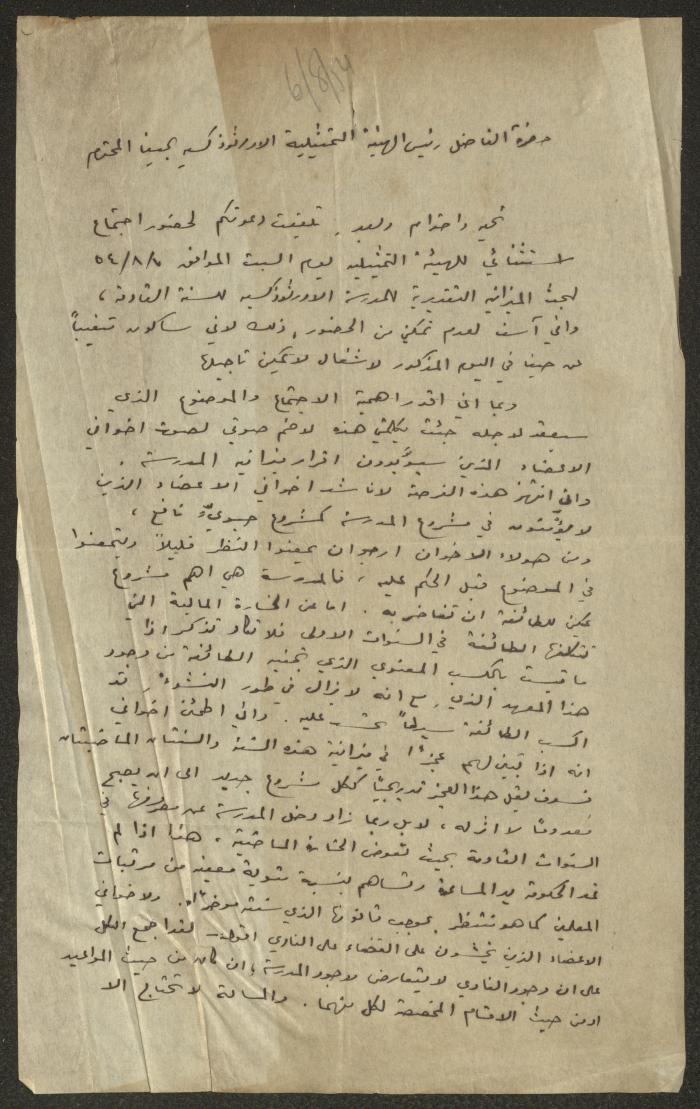 6/8/54
حضرة الفاضل رئيس الهيئة التمثيلية الاورثوذكسيه بحيفا المحترم
تحيه واحترام وبعد، تلقيت دعوتكم لحضور اجتماع
استثنائي للهيئة التمثيليه يوم السبت الموافق ٥٤/٨/٧
لبحث الميزانيه التقديرية للمدرسة الاورثوذكسيه للسنة القادمة،
واني آسف لعدم تمكني من الحضور، وذلك لاني ساكون متغيباً
عن حيفا في اليوم المذكور لاشغال لا يمكن تاجيلها
وبما اني اقدر اهمية الاجتماع والموضوع الذي
سيعقد لاجله جئت بكلمتي هذه لاضم صوتي لصوت اخواني
الاعضاء الذين سيؤيدون اقرار ميزانيه المدرسة.
واني انتهز هذه الفرصة لاناشد اخواني الاعضاء الذين
لا يؤمنون في مشروع المدرسة كمشروع حيويّ نافع،
ومن هولاء الاخوان ارجو ان يمعنوا النظر قليلاً ويتمعنوا
في الموضوع قبل الحكم عليه، فالمدرسة هي اهم مشروع
يمكن للطائفة ان تفاخر به. اما عن الخسارة المالية التي
تتكلفها الطائفة في السنوات الاولى فلا تكاد تذكر اذا
ما قيست بالكسب المعنوي الذي تجنيه الطائفة من وجود
هذا المعهد الذي، مع انه لا يزال في طور النشوء، قد
اكسب الطائفة سيطاً تحسد عليه. واني اطمئن اخواني
انه اذا تبين لهم عجزاً في ميزانية هذه السنة والسنتان الماضيتان
فسوف يقل هذا العجز تدريجياً ككل مشروع جديد الى ان يصبح
معدوماً لا اثر له، لا بل ربما زاد دخل المدرسة عن مصروفها في
السنوات القادمة بحيث تعوض الخسارة الماضية، هذا اذا لم
تمد الحكومة يد المساعدة وتساهم بنسبة مئوية معينه من مرتبات
المعلمين كما هو منتظر بموجب قانونها الذي سنته مؤخراً. ولاخواني
الاعضاء الذين يخشون على القضاء على النادي اقول: لقد اجمع الكل
على ان وجود النادي لا يتعارض ووجود المدرسة ان كان من حيث المواعيد
او من حيث الاقسام المخصصة لكل منهما. والمسالة لا تحتاج الا